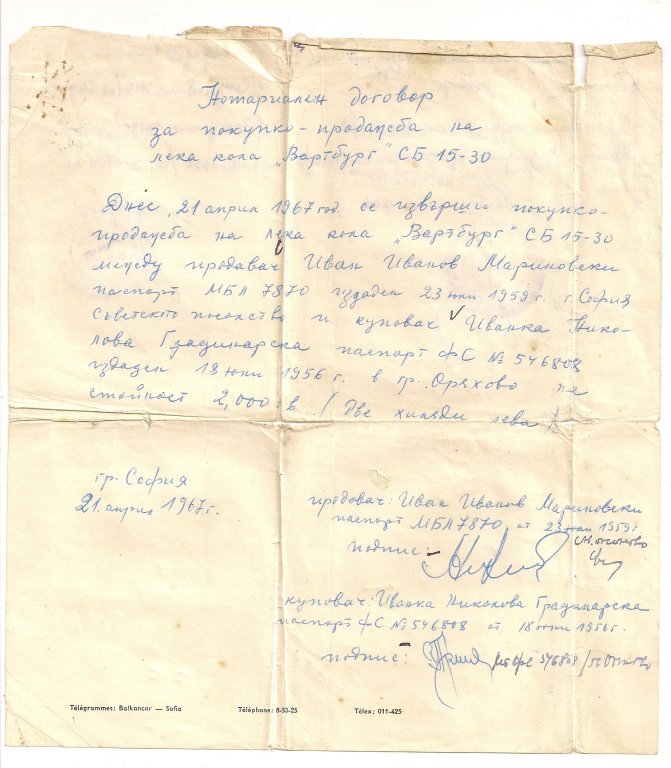 Нотариален договор
за покупко-продажба на
лека кола „Вартбург" СБ 15-30
Днес, 21 април 1967 год. се извърши покупко-
продажба на лека кола „Вартбург" СБ 15-30
между продавач Иван Иванов Мариновски
паспорт МБЛ 7870 издаден 23 юли 1959 г. г. София
Съветското посолство и купувач Иванка Нико-
лова Градинарска паспорт ФС № 546808
издаден 18 юни 1956 г. в гр. Оряхово на
стойност 2,000 лв. / Две хиляди лева /
гр. София
21. април 1967 г.
продавач: Иван Иванов Мариновски
паспорт МБЛ 7870 от 23 юли 1959 г.
подпис:
купувач: Иванка Николова Градинарска
паспорт ФС № 546808 от 18 юни 1956 г.
подпис: 546808
Télégrammes: Balkancar — Sofia Téléphone: 8-53-25 Télex: 011-425